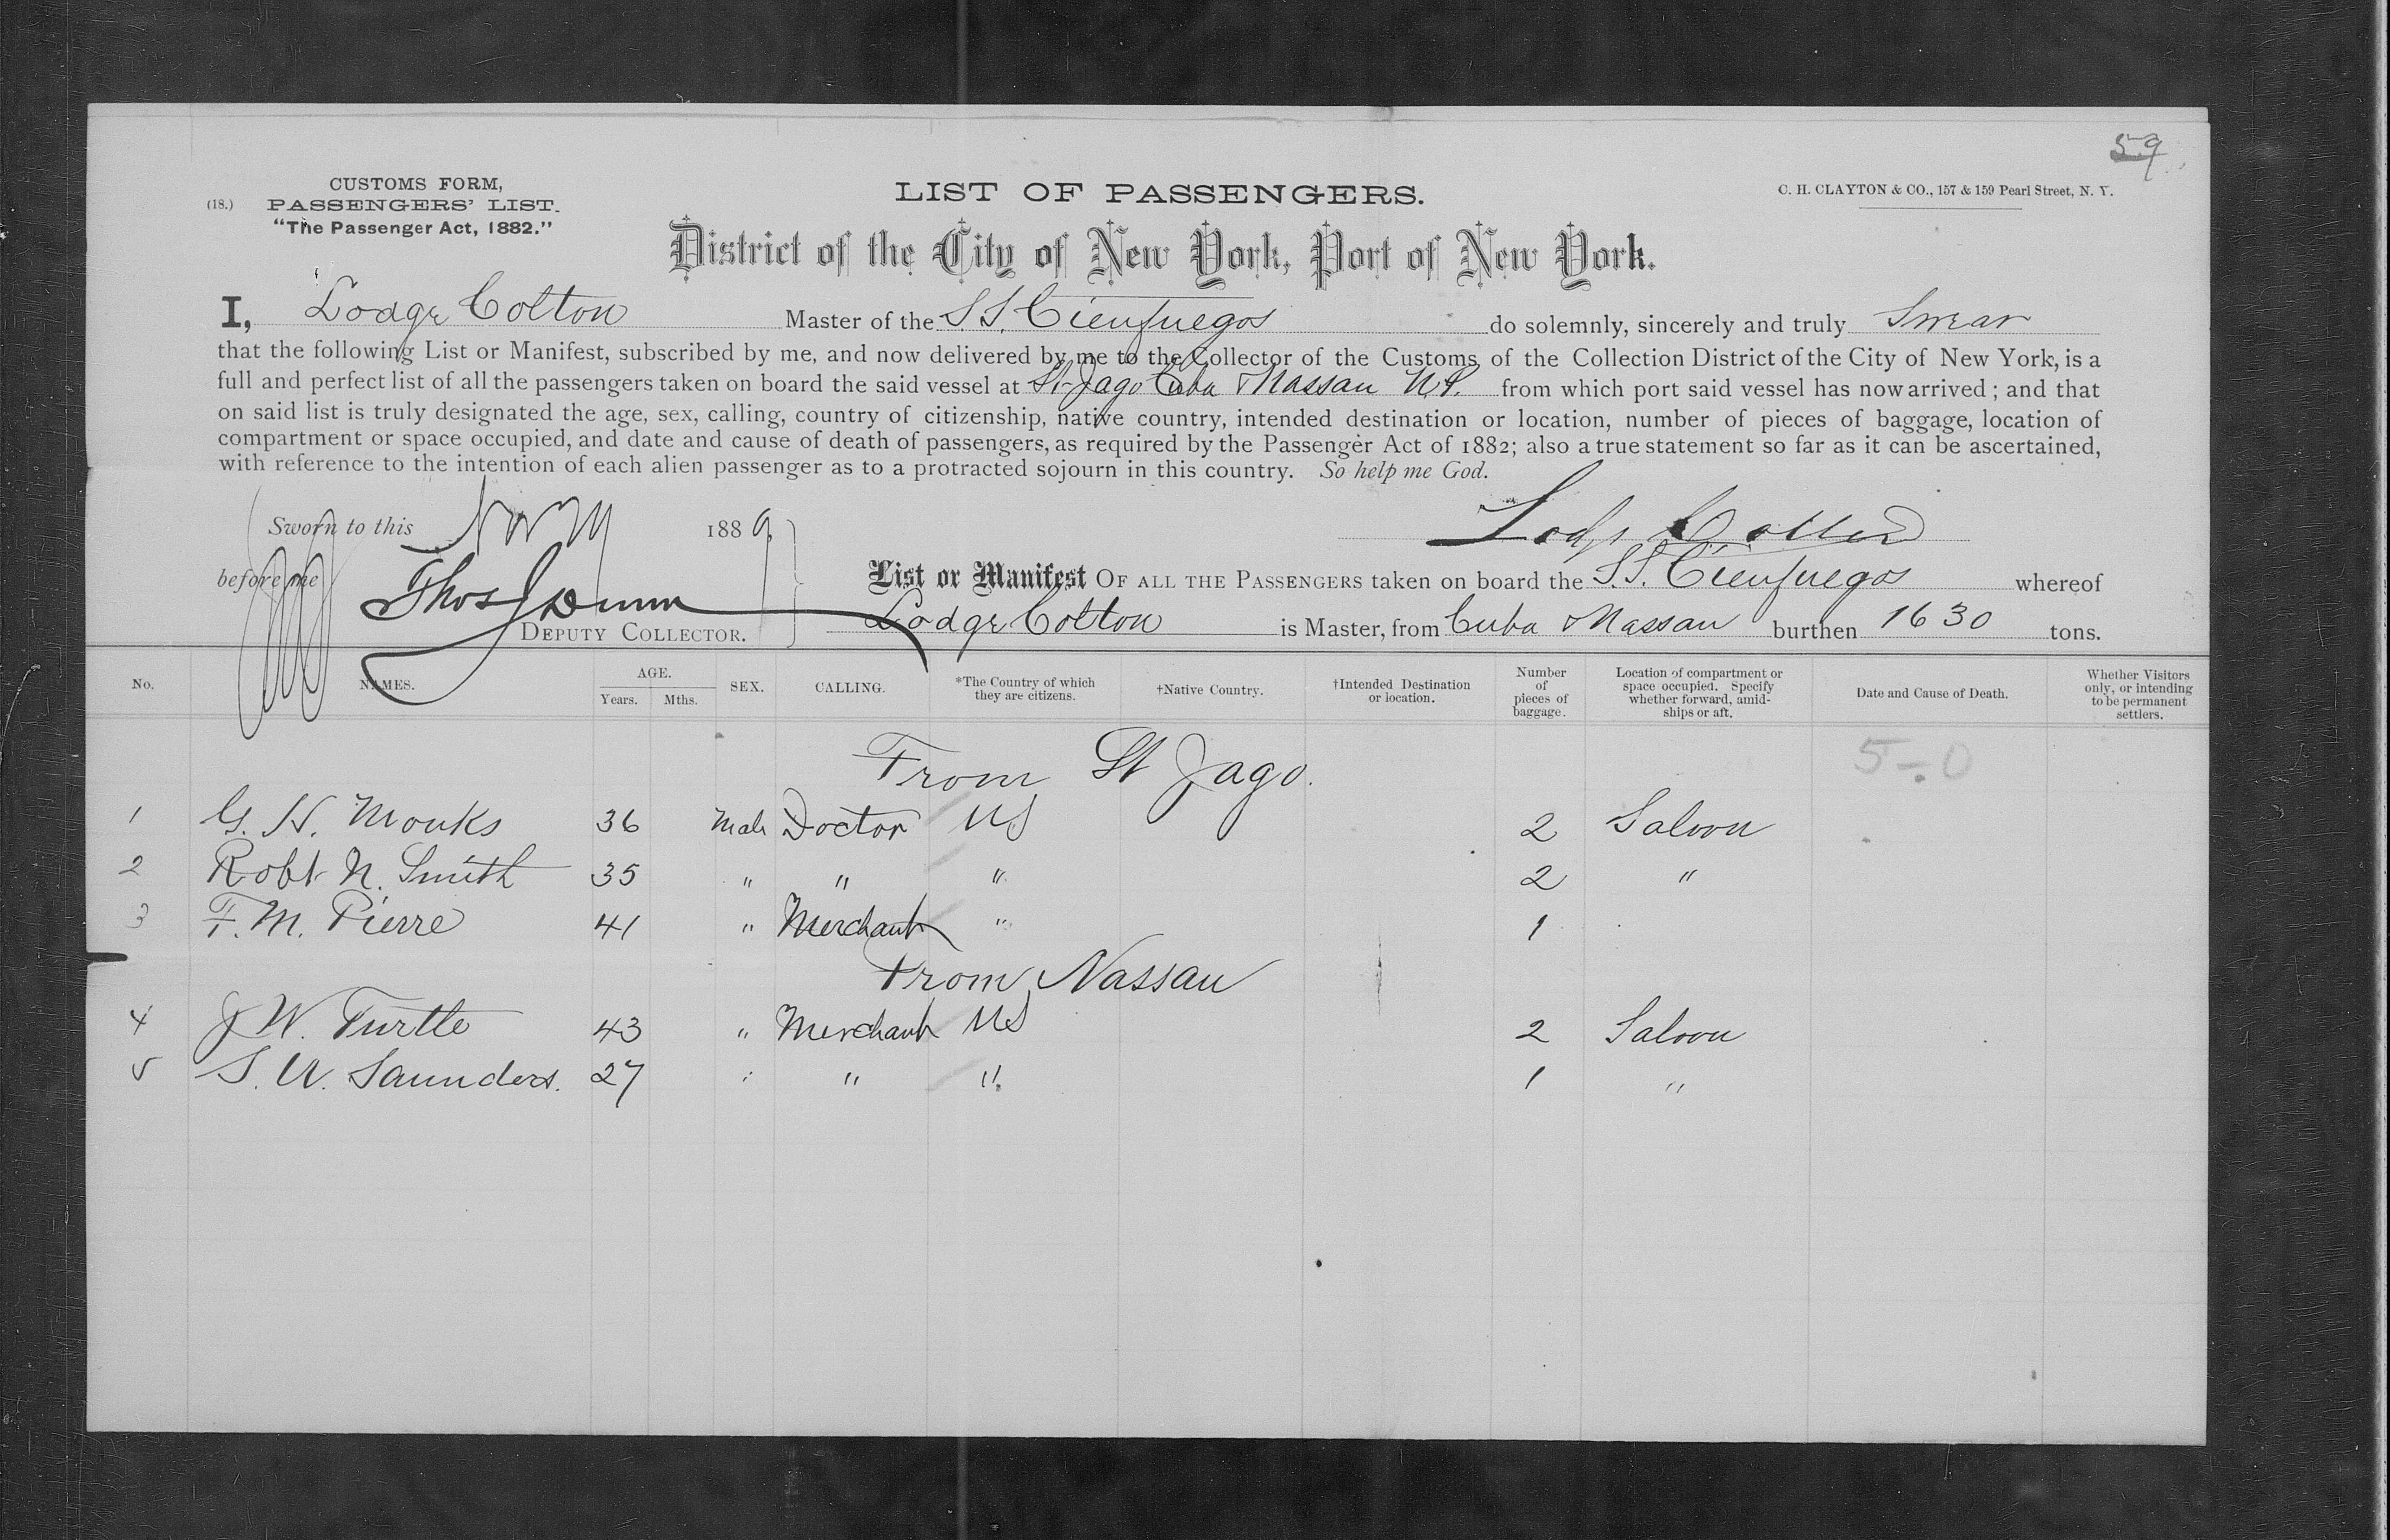 59
CUSTOMS FORM,
(18.) PASSENGERS' LIST.
"The Passenger Act, 1882."
LIST OF PASSENGERS.
C. H. CLAYTON & CO., 157 & 159 Pearl Street, N. Y.
District of the City of New York, Port of New York.
I, Lodge Colton Master of the S.S. Cienfuegos do solemnly, sincerely and truly Swear
that the following List or Manifest, subscribed by me, and now delivered by me to the Collector of the Customs of the Collection District of the City of New York, is a
full and perfect list of all the passengers taken on board the said vessel at St Jago Cuba & Nassau N.P. from which port said vessel has now arrived; and that
on said list is truly designated the age, sex, calling, country of citizenship, native country, intended destination or location, number of pieces of baggage, location of
compartment or space occupied, and date and cause of death of passengers, as required by the Passenger Act of 1882; also a true statement so far as it can be ascertained,
with reference to the intention of each alien passenger as to a protracted sojourn in this country. So help me God.
Sworn to this 1889
Lodge Colton
before me Thos J Dunn
DEPUTY COLLECTOR.
List or Manifest OF ALL THE PASSENGERS taken on board the S.S. Cienfuegos whereof
Lodge Colton is Master, from Cuba & Nassau burthen 1630 tons.
No. NAMES. AGE. Years. Mths. SEX. CALLING. *The Country of which they are citizens. †Native Country. †Intended Destination or location. Number of pieces of baggage. Location of compartment or space occupied. Specify whether forward, amidships or aft. Date and Cause of Death. Whether Visitors only, or intending to be permanent settlers.
From St Jago. 5-0
1 G. H. Monks 36 Male Doctor US 2 Saloon
2 Robt N. Smith 35 " " " 2 "
3 F. M. Pierre 41 " Merchant " 1
From Nassau
4 J W. Turtle 43 " Merchant US 2 Saloon
5 S. W. Saunders. 27 " " " 1 "